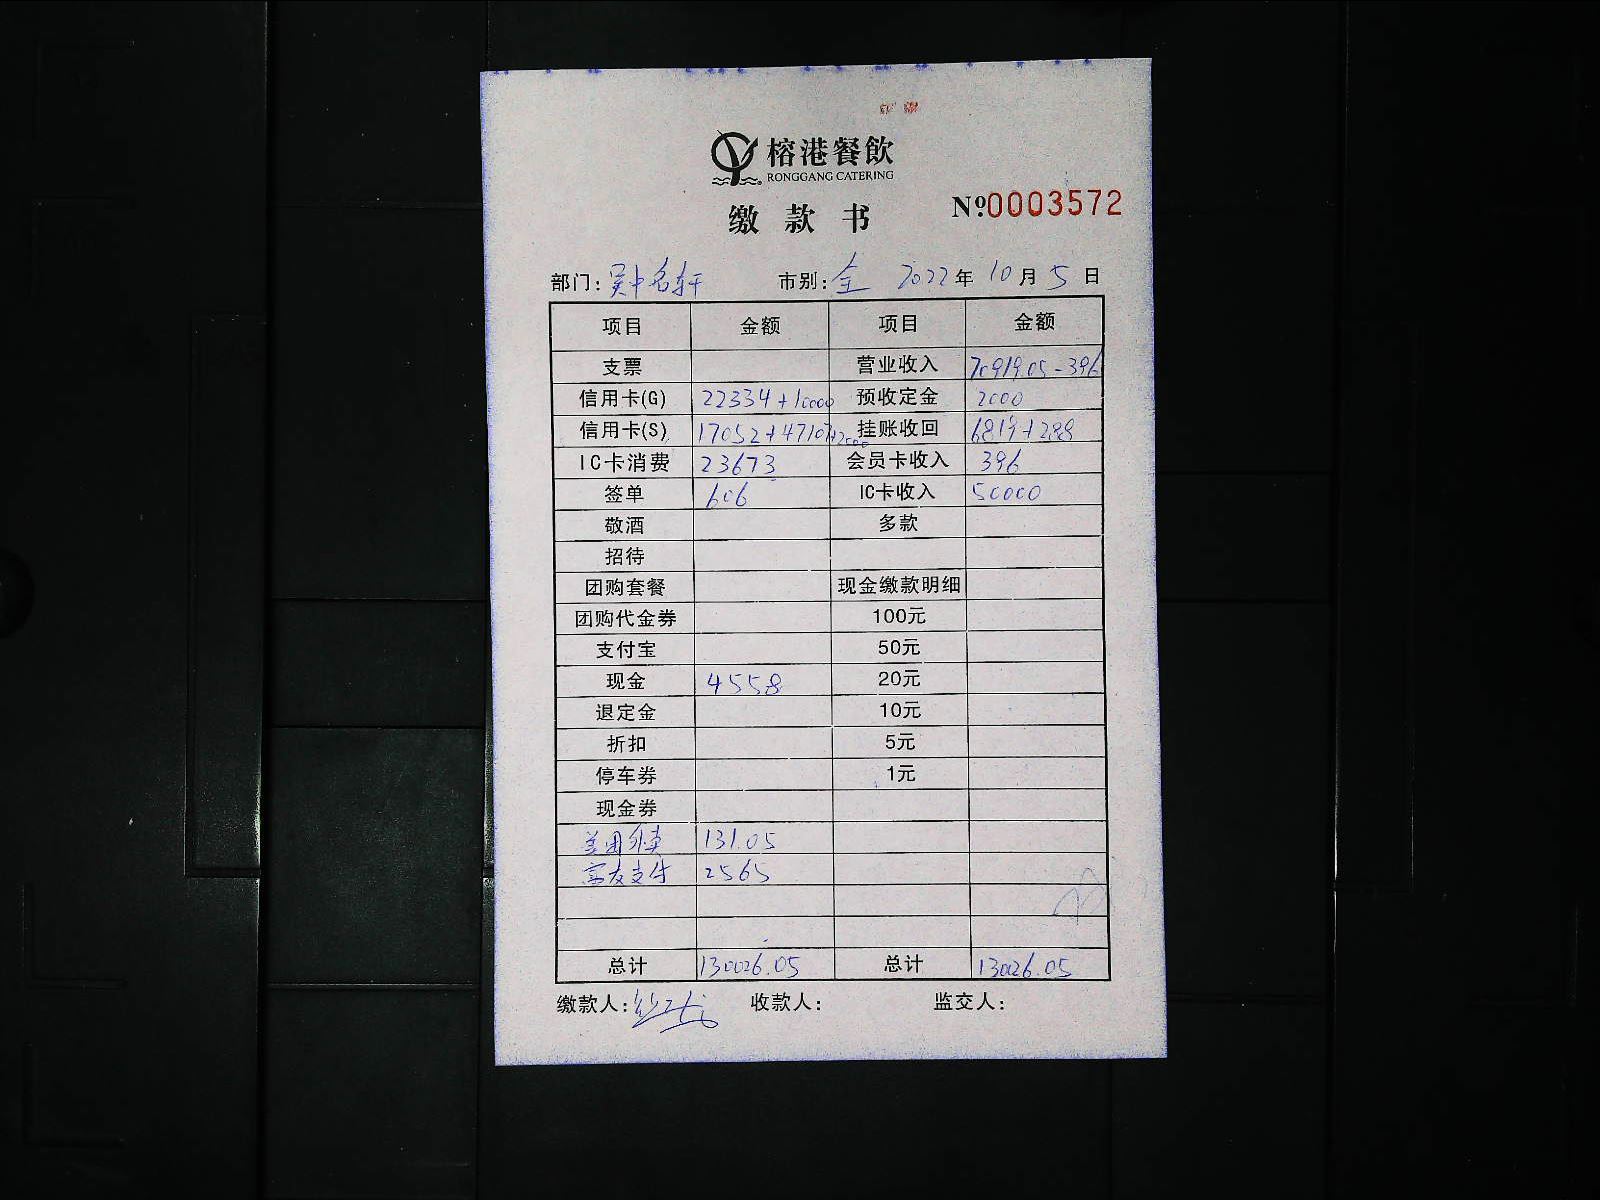 榕港餐飲
RONGGANG CATERING
缴款书 №0003572
部门: 吴中名轩 市别: 全 2022年10月5日
项目 金额 项目 金额
支票 营业收入 70919.05-396
信用卡(G) 22334+10000 预收定金 2000
信用卡(S) 17052+47107+2000 挂账收回 6819+288
IC卡消费 23673 会员卡收入 396
签单 606 IC卡收入 50000
敬酒 多款
招待
团购套餐 现金缴款明细
团购代金券 100元
支付宝 50元
现金 4558 20元
退定金 10元
折扣 5元
停车券 1元
现金券
美团外卖 131.05
富友支付 2565
总计 130026.05 总计 13026.05
缴款人: 收款人: 监交人: